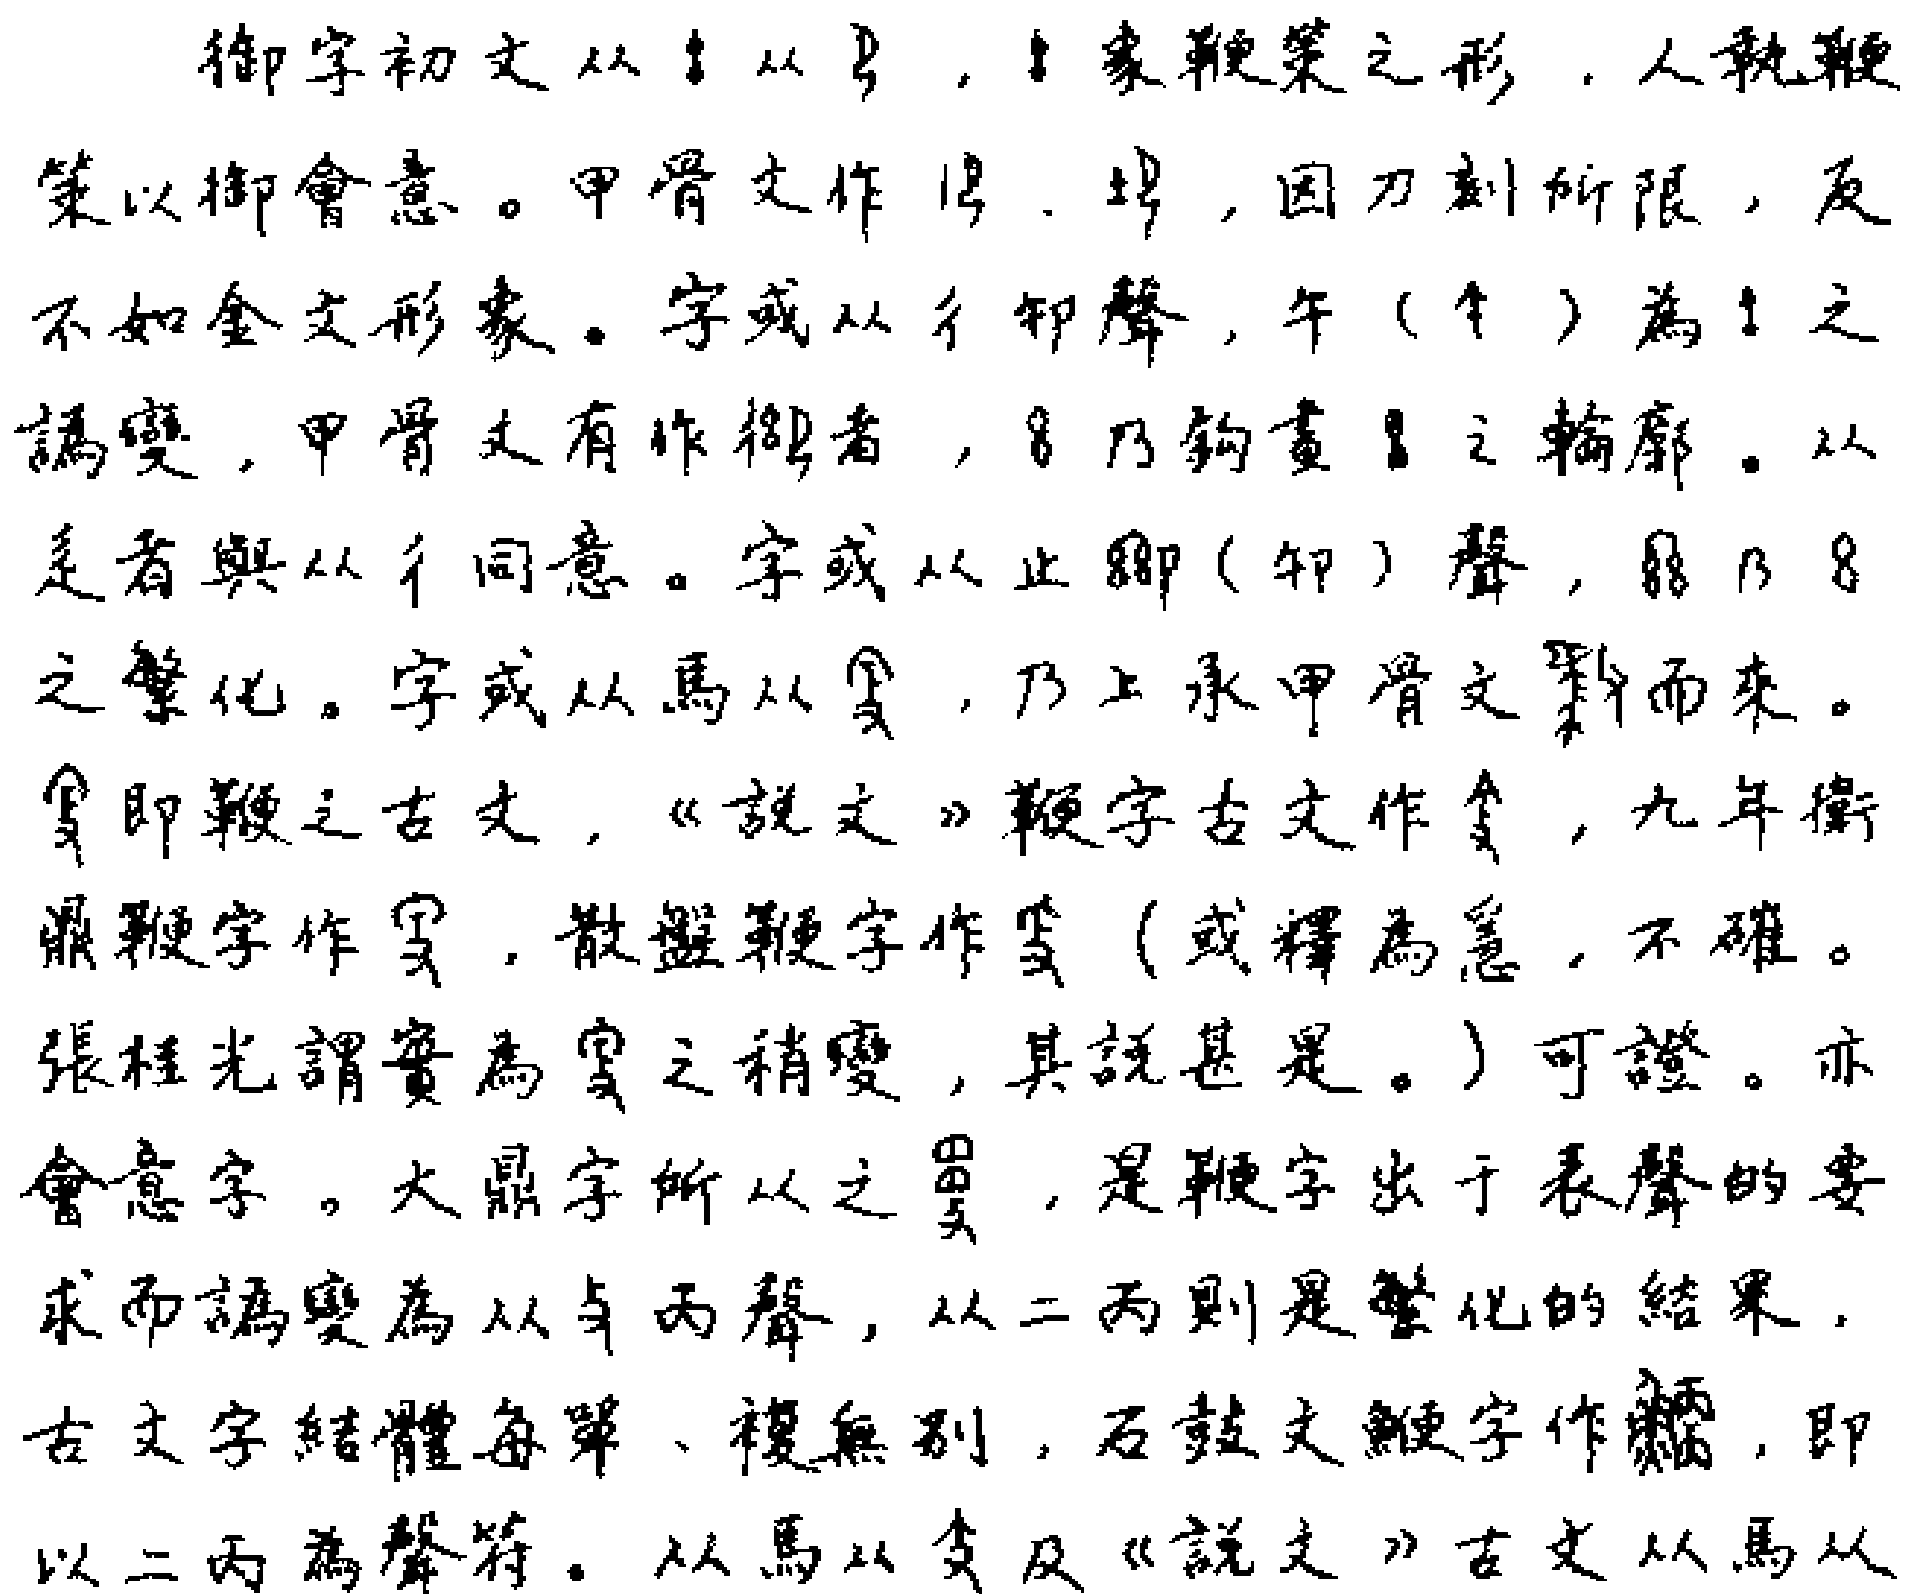 御字初文从從,象鞭策之形,人執鞭
策以御會意。甲骨文作、,因刀刻所限,反
不如金文形象。字或从彳卸聲,午()為之
譌變,甲骨文有作者,乃鈎畫之輪廓。从
辵者與从彳同意。字或从止(卸)聲,乃
之繁化。字或从馬从,乃上承甲骨文而來。
即鞭之古文,《說文》鞭字古文作,九年衛
鼎鞭字作,散盤鞭字作(或釋為,不確。
張桂光謂實為之稍變,其說甚是。)可證。亦
會意字。大鼎字所从之,是鞭字出于表聲的要
求而譌變為从攴丙聲,从二丙則是繁化的結果,
古文字結體每單、複無別,石鼓文鯾字作,即
以二丙為聲符。从馬从及《說文》古文从馬从